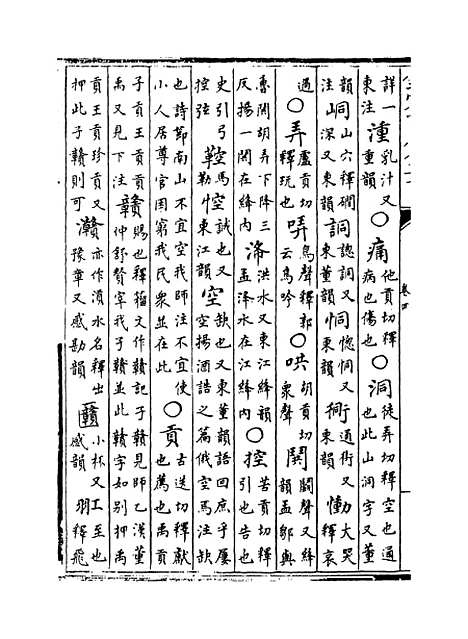 詳一東注湩乳汁又重韻○痛他貢切釋病也傷也○洞徒弄切釋空也通也此山洞字又董
韻注峒山穴釋磵山深又東韻詷謥詷又東董韻恫惚恫又東韻衕通街又東韻慟大哭釋哀
過○弄盧貢切釋玩也哢鳥聲釋郭云鳥吟○哄胡貢切衆聲鬨鬭聲又絳韻孟鄒與
魯鬨胡弄下降三反揚一鬨在絳內洚洪水又東江絳韻孟洚水在江絳內○控苦貢切釋引也告也
史引弓控弦鞚馬勒悾誠也又東江韻空缺也又東董韻語回庶乎屢空揚酒誥之篇俄空焉注缺
也詩節南山不宜空我師注不宜使小人居尊官困窮我民衆並在此○貢古送切釋獻也薦也禹貢
子貢王貢又禹又見下注贛賜也釋籀文作贛記子贛見師乙漢董仲舒贊宰我子贛並此贛字如别押禹
貢王貢珍貢又押此子贛則可灨亦作水名釋出豫章又感勘韻小杯又感韻羾至也釋飛